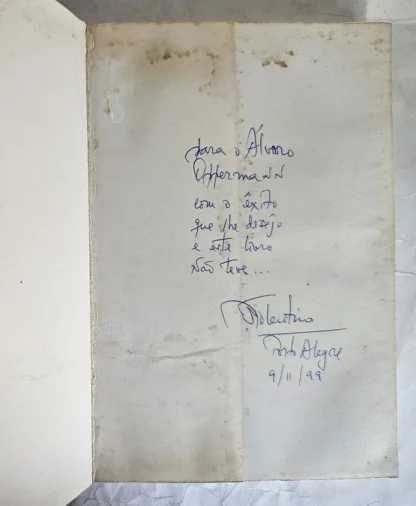 para o Álvaro
Offermann
com o êxito
que lhe desejo
e este livro
não teve...
Tolentino
Porto Alegre
9/11/99